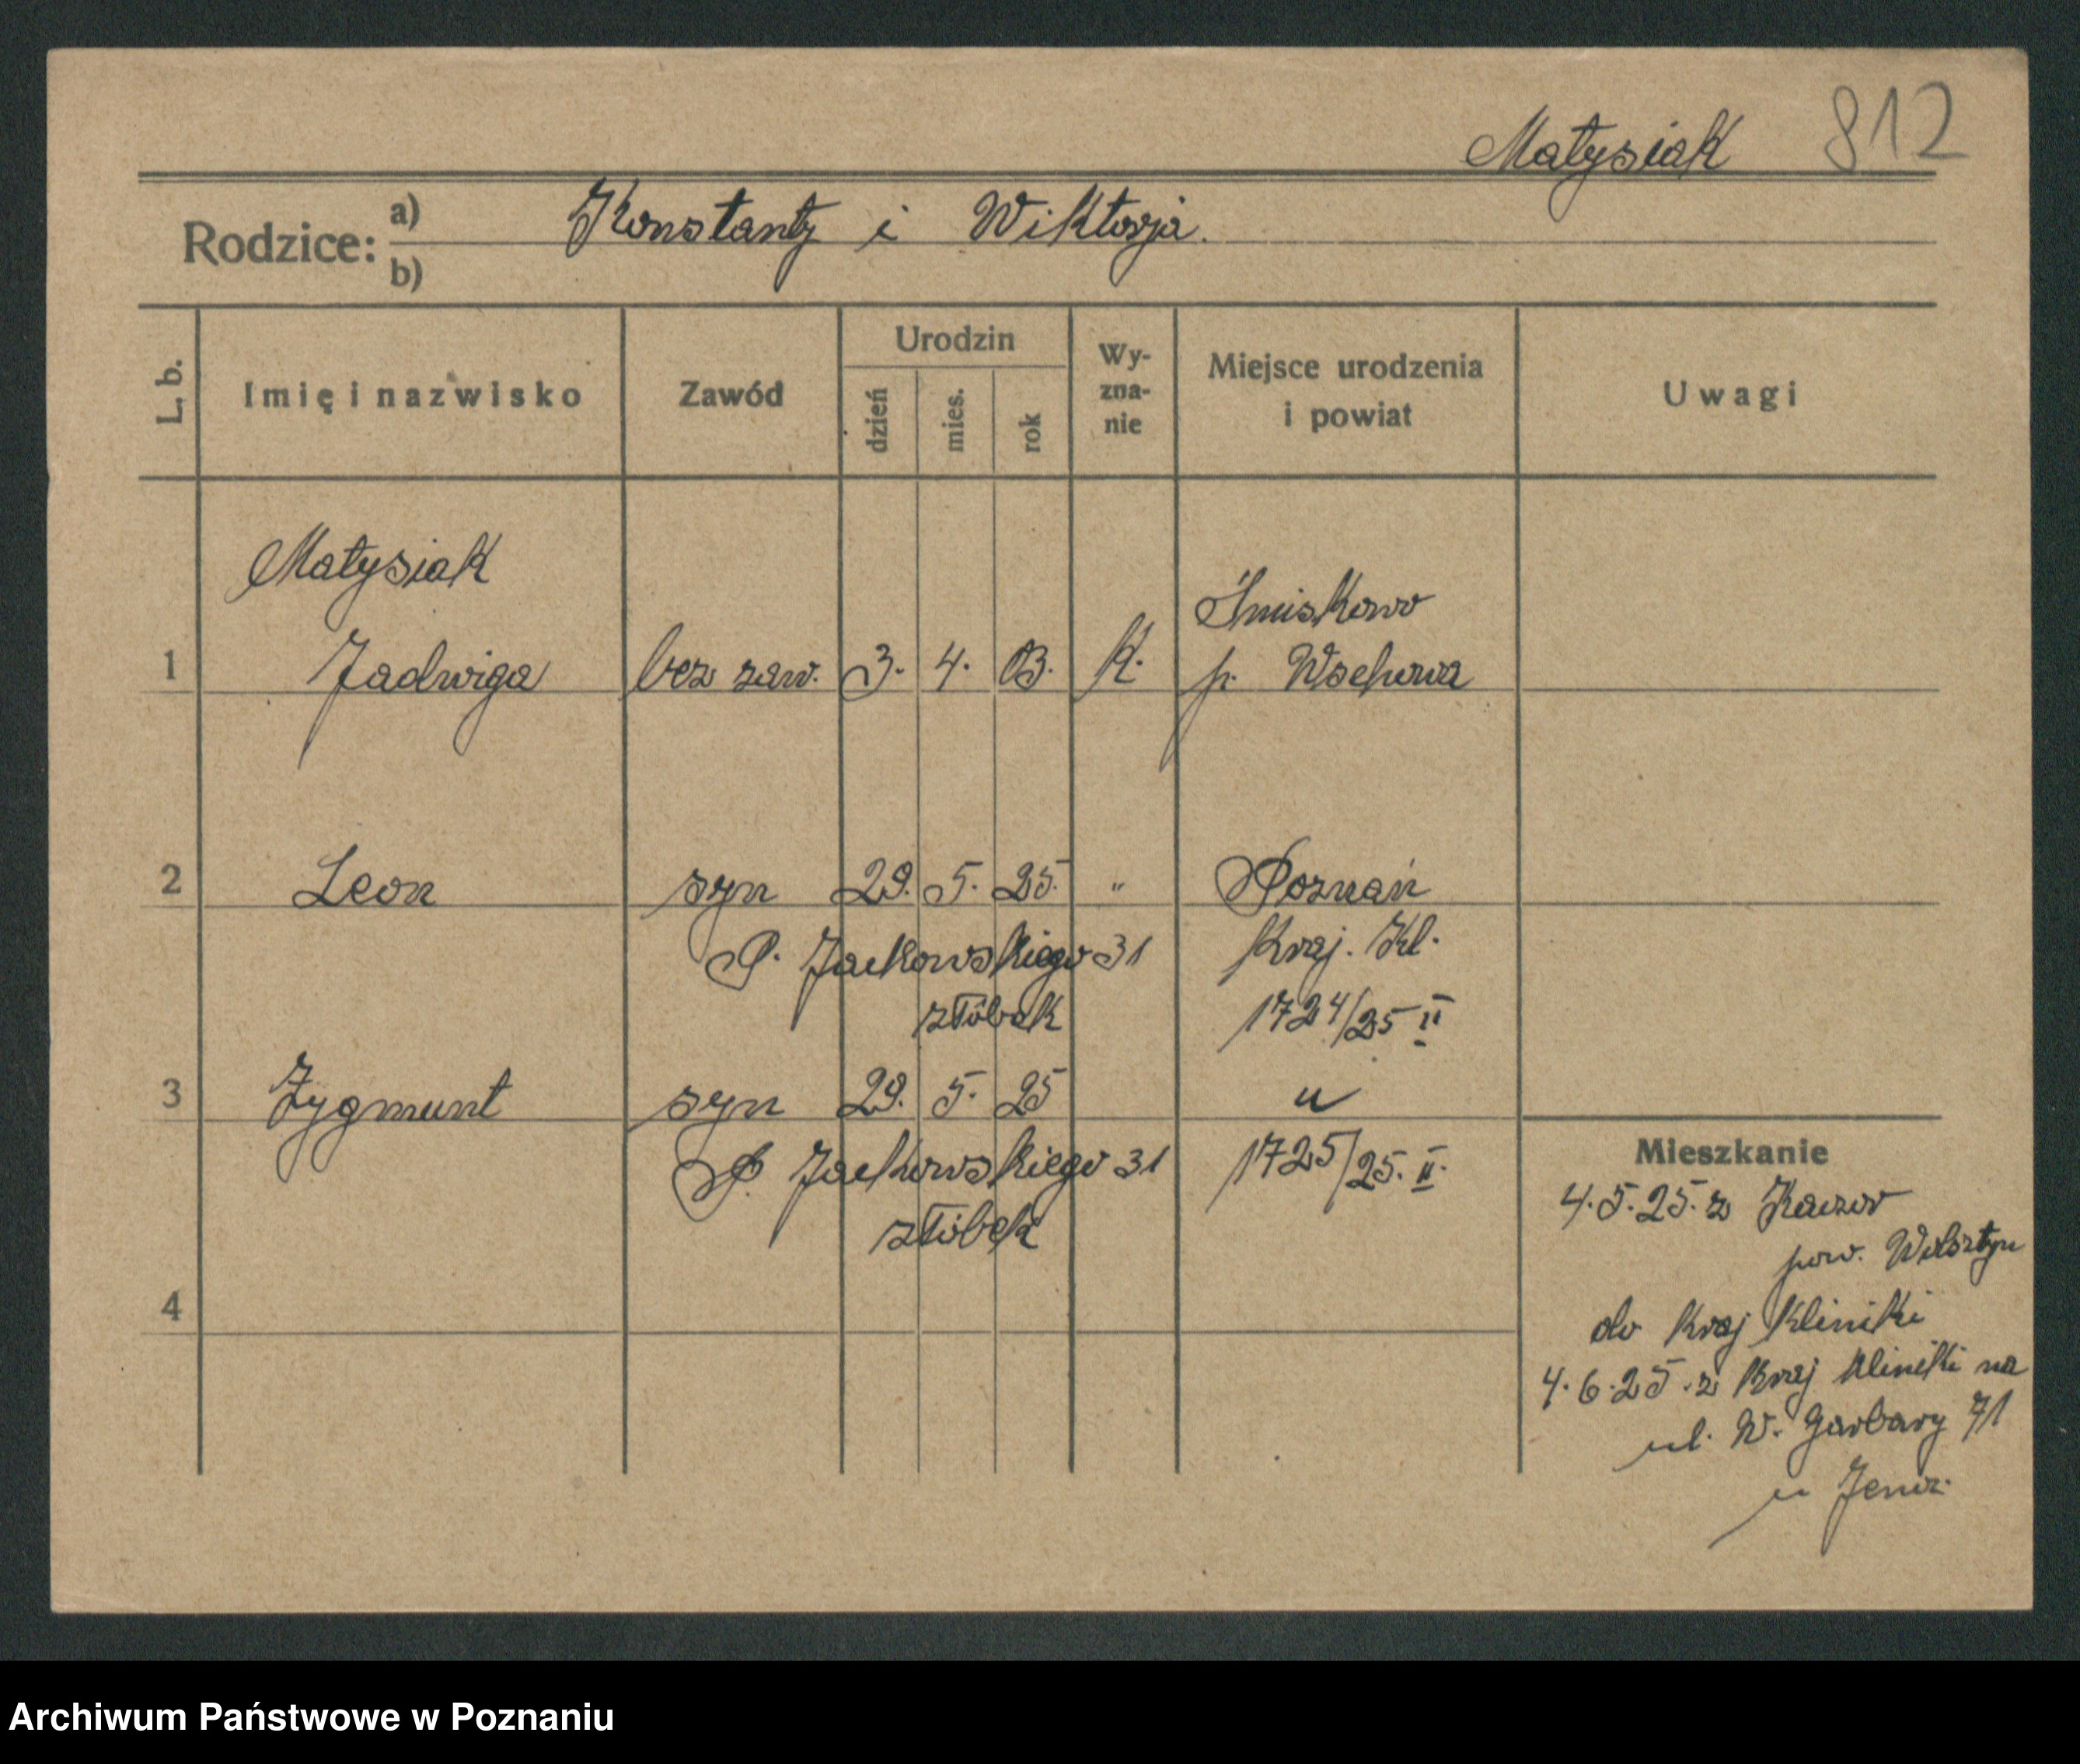 Matysiak 812
Rodzice: a) Konstanty i Wiktorja.
b)
L. b.
Imię i nazwisko
Zawód
Urodzin
dzień
mies.
rok
Wy-
zna-
nie
Miejsce urodzenia
i powiat
Uwagi
Matysiak
1 Jadwiga bez zaw. 3. 4. 03. K.
Śmiskowo
p. Wschowa
2 Leon syn 29. 5. 25. " Poznań
P. Jackowskiego 31 Kraj. Kl.
złóbek 1724/25 II
3 Zygmunt syn 29. 5. 25 "
P. Jackowskiego 31 1725/25. II.
złóbek
4
Mieszkanie
4.5.25. z
pow. Wolsztyn
do Kraj Kliniki
4.6.25. z Kraj Kliniki na
ul. W. Garbary 71
u
Archiwum Państwowe w Poznaniu